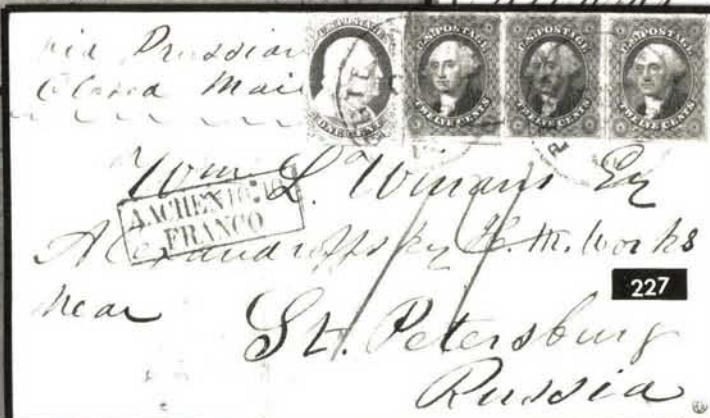 via Prussian
Closed Mail
U.S. POSTAGE
ONE CENT
U.S. POSTAGE
TWELVE CENTS
U.S. POSTAGE
TWELVE CENTS
U.S. POSTAGE
TWELVE CENTS
Wm. L. Winans Eq
AACHEN
FRANCO
Alexandroffsky H. M. Works
near
227
St. Petersburg
Russia